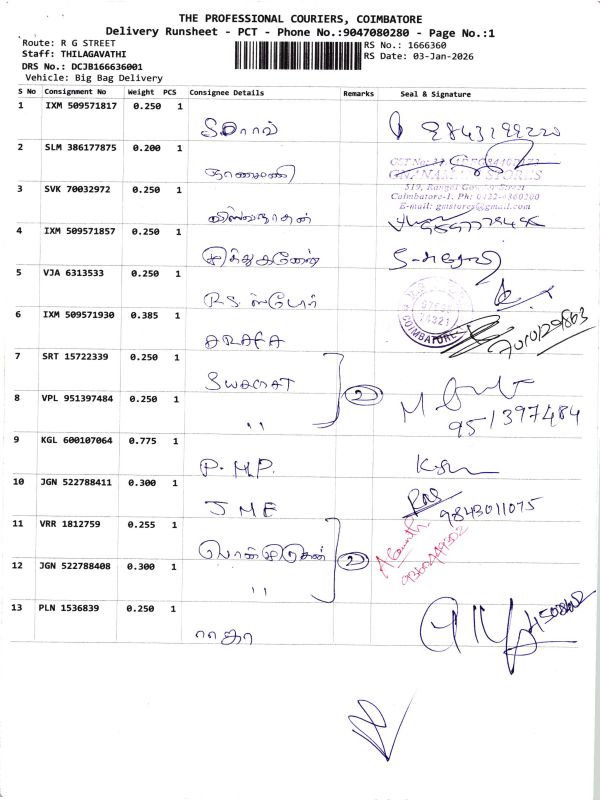 THE PROFESSIONAL COURIERS, COIMBATORE
Delivery Runsheet - PCT - Phone No.:9047080280 - Page No.:1
Route: R G STREET
Staff: THILAGAVATHI
DRS No.: DCJB166636001
Vehicle: Big Bag Delivery
RS No.: 1666360
RS Date: 03-Jan-2026
S No Consignment No Weight PCS Consignee Details Remarks Seal & Signature
1 IXM 509571817 0.250 1
2 SLM 386177875 0.200 1
நாணமணி
GNANAMANI STORES
519, Rangai Gowder Street
Coimbatore-1. Ph: 0422-4360200
E-mail: gmstores@gmail.com
3 SVK 70032972 0.250 1
விஸ்வநாதன்
4 IXM 509571857 0.250 1
சித்துகணேஷ்
5 VJA 6313533 0.250 1
R.S. ஸ்டோர்
COIMBATORE
6 IXM 509571930 0.385 1
ARAFA
7010129863
7 SRT 15722339 0.250 1
SWAGAT
2
8 VPL 951397484 0.250 1
,,
951397484
9 KGL 600107064 0.775 1
P.M.P.
10 JGN 522788411 0.300 1
JME
9843011075
11 VRR 1812759 0.255 1
பொன்முருகன்
2
12 JGN 522788408 0.300 1
,,
13 PLN 1536839 0.250 1
ராகா